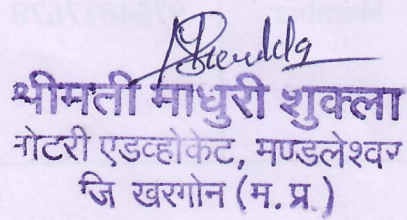 श्रीमती माधुरी शुक्ला
नोटरी एडव्होकेट, मण्डलेश्वर
जि खरगोन (म.प्र.)